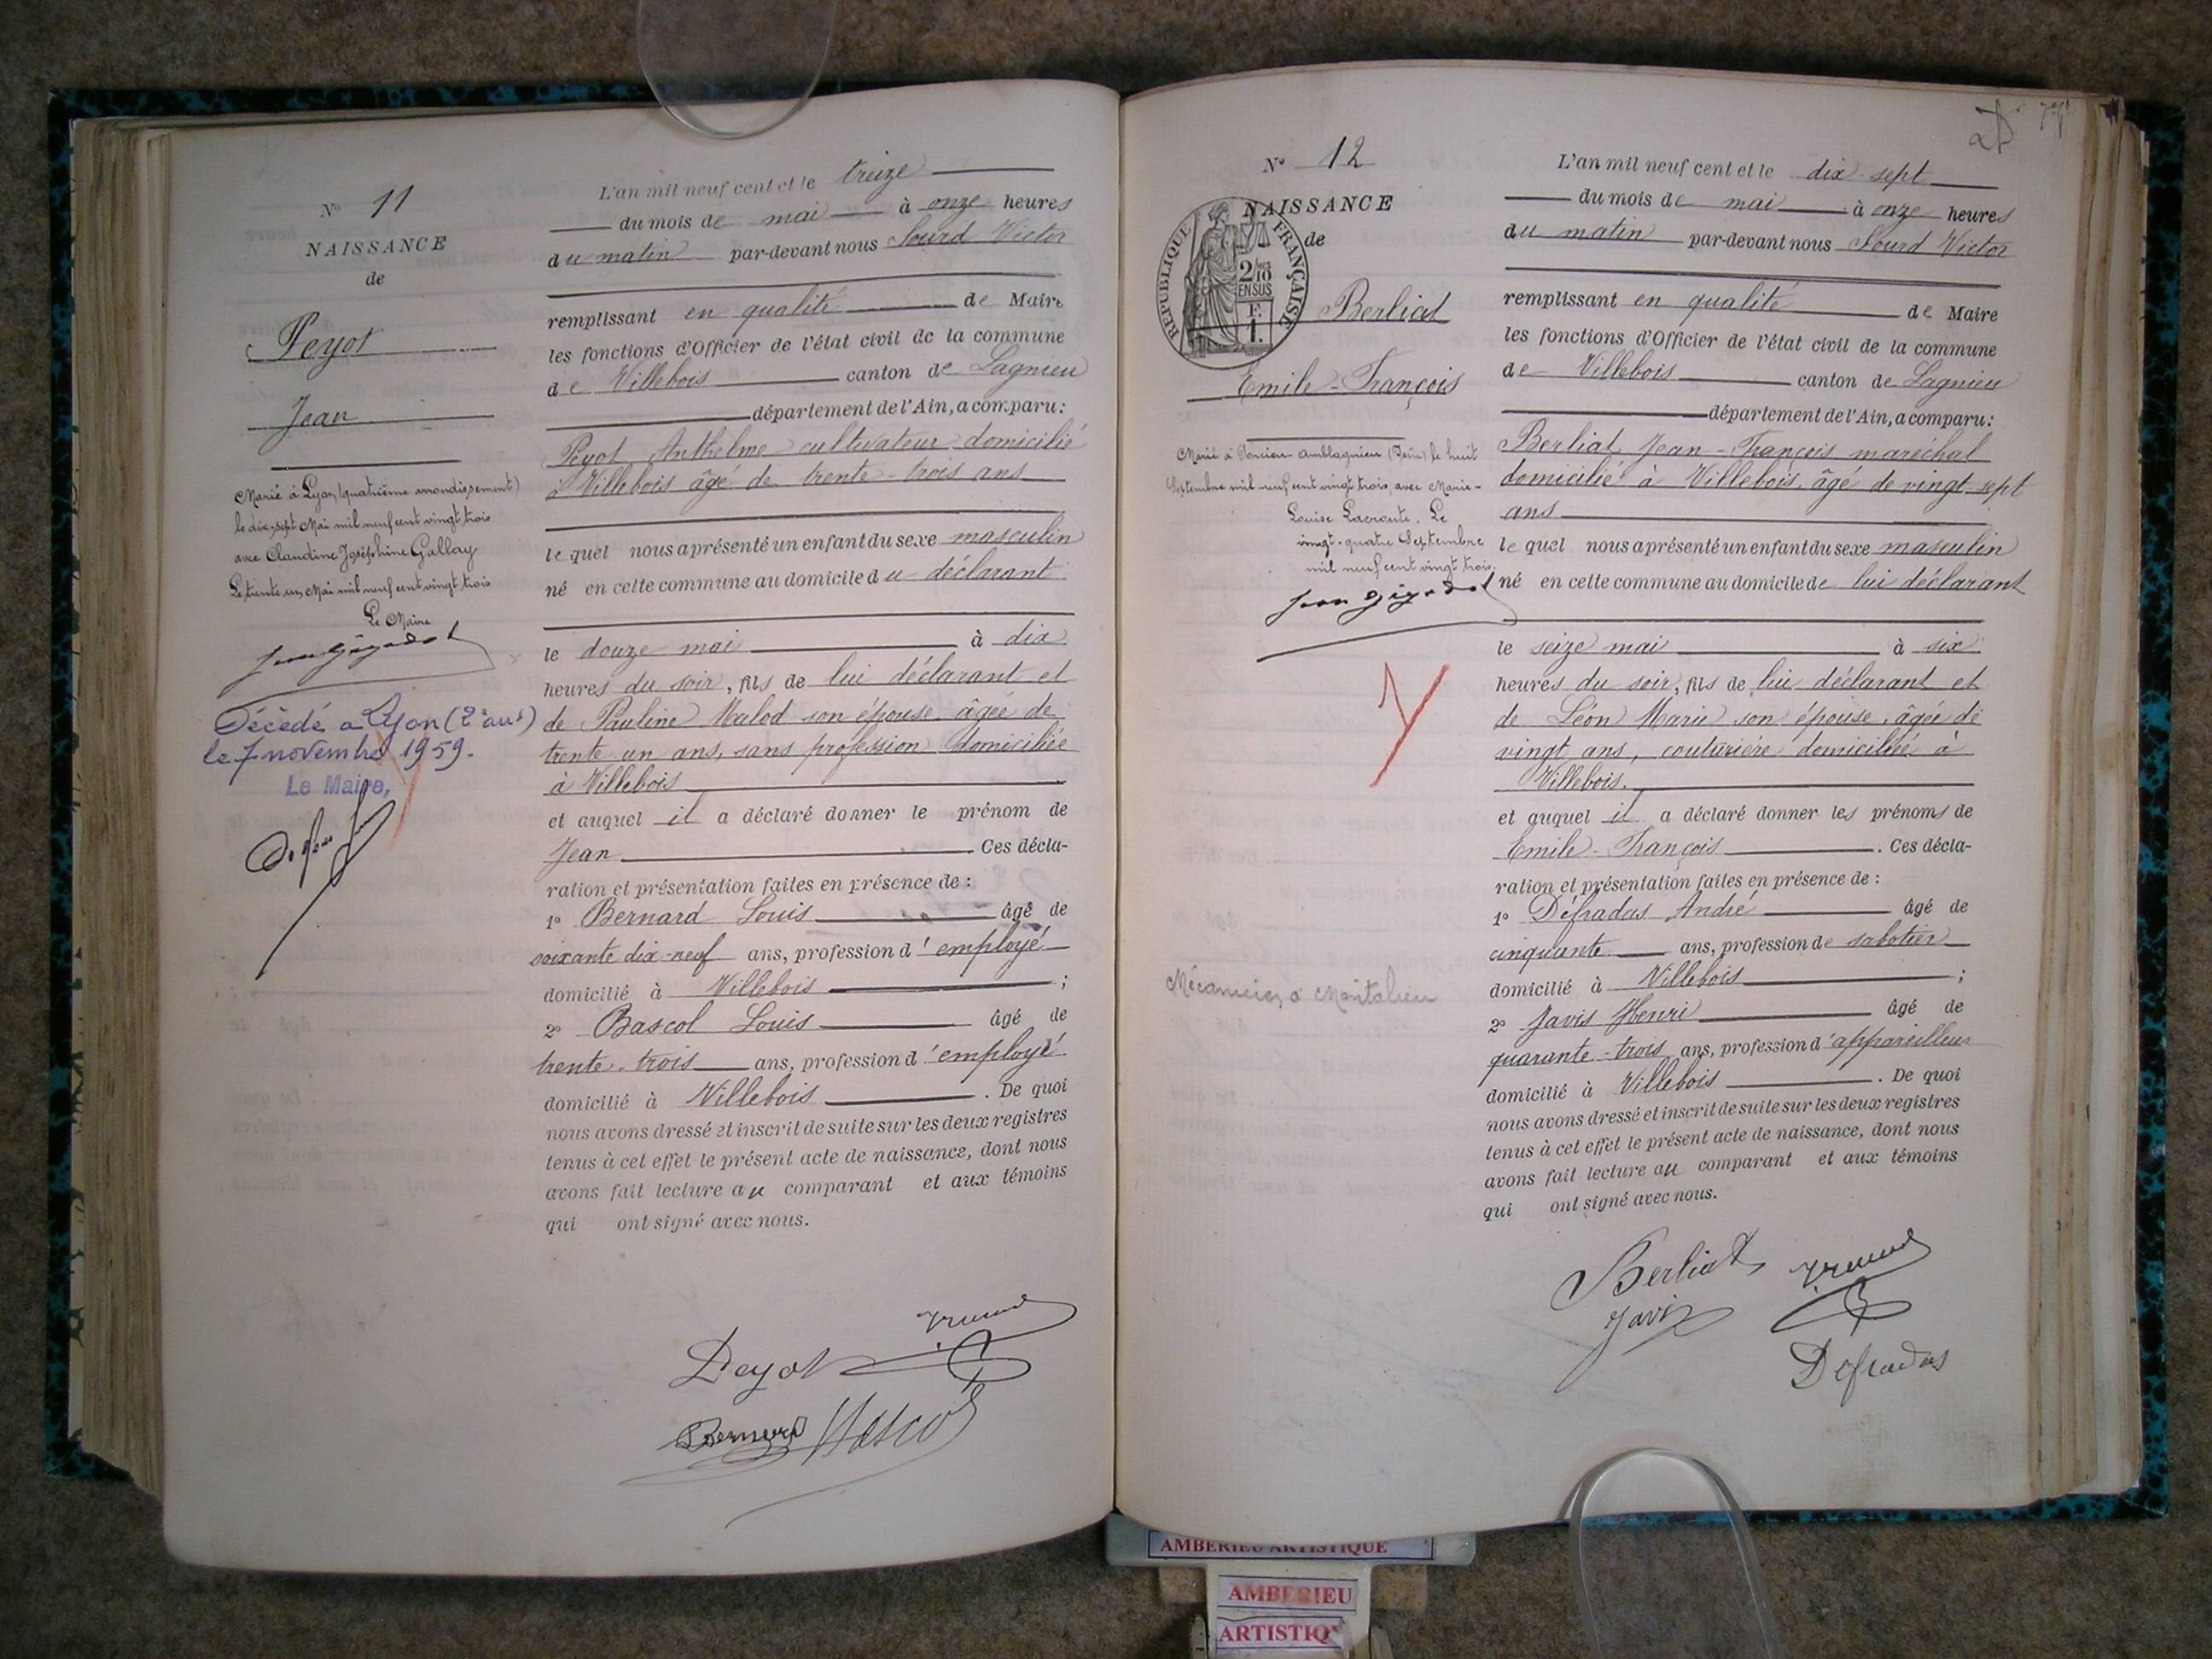 N° 11
NAISSANCE
de
Peyot
Jean
Marié à Lyon (quatrième arrondissement)
le dix-sept Mai mil neuf cent vingt trois
avec Claudine Joséphine Gallay
Le trente un Mai mil neuf cent vingt trois
Le Maire
Décédé a Lyon (2e arrt)
le 7 novembre 1959.
Le Maire,
L'an mil neuf cent et le treize
du mois de mai à onze heures
du matin par-devant nous Sourd Victor
remplissant en qualité de Maire
les fonctions d'Officier de l'état civil de la commune
de Villebois canton de Lagnieu
département de l'Ain, a comparu:
Peyot Anthelme cultivateur domicilié
à Villebois âgé de trente-trois ans
le quel nous a présenté un enfant du sexe masculin
né en cette commune au domicile du déclarant
le douze mai à dix
heures du soir, fils de lui déclarant et
de Pauline Malod son épouse âgée de
trente un ans, sans profession domiciliée
à Villebois
et auquel il a déclaré donner le prénom de
Jean. Ces décla-
ration et présentation faites en présence de :
1° Bernard Louis âgé de
soixante dix-neuf ans, profession d'employé
domicilié à Villebois ;
2° Bascol Louis âgé de
trente-trois ans, profession d'employé
domicilié à Villebois. De quoi
nous avons dressé et inscrit de suite sur les deux registres
tenus à cet effet le présent acte de naissance, dont nous
avons fait lecture au comparant et aux témoins
qui ont signé avec nous.
Peyot
Bernard Bascol
N° 12
NAISSANCE
de
RÉPUBLIQUE FRANÇAISE
2/10
EN SUS
F.
1.
Berliat
Emile-François
Marié à Porcieu-Amblagnieu (Isère) le huit
Septembre mil neuf cent vingt trois, avec Marie-
Louise Lacroute. Le
vingt-quatre Septembre
mil neuf cent vingt trois.
Mécanicien à Montalieu
L'an mil neuf cent et le dix-sept
du mois de mai à onze heures
du matin par-devant nous Sourd Victor
remplissant en qualité de Maire
les fonctions d'Officier de l'état civil de la commune
de Villebois canton de Lagnieu
département de l'Ain, a comparu:
Berliat Jean-François maréchal
domicilié à Villebois, âgé de vingt-sept
ans
le quel nous a présenté un enfant du sexe masculin
né en cette commune au domicile de lui déclarant
le seize mai à six
heures du soir, fils de lui déclarant et
de Léon Marie son épouse, âgée de
vingt ans, couturière domiciliée à
Villebois.
et auquel il a déclaré donner les prénoms de
Emile-François. Ces décla-
ration et présentation faites en présence de :
1° Défradas André âgé de
cinquante ans, profession de sabotier
domicilié à Villebois ;
2° Javis Henri âgé de
quarante-trois ans, profession d'appareilleur
domicilié à Villebois. De quoi
nous avons dressé et inscrit de suite sur les deux registres
tenus à cet effet le présent acte de naissance, dont nous
avons fait lecture au comparant et aux témoins
qui ont signé avec nous.
Berliat
Javis
Defradas
AMBERIEU ARTISTIQUE
AMBERIEU
ARTISTIQ